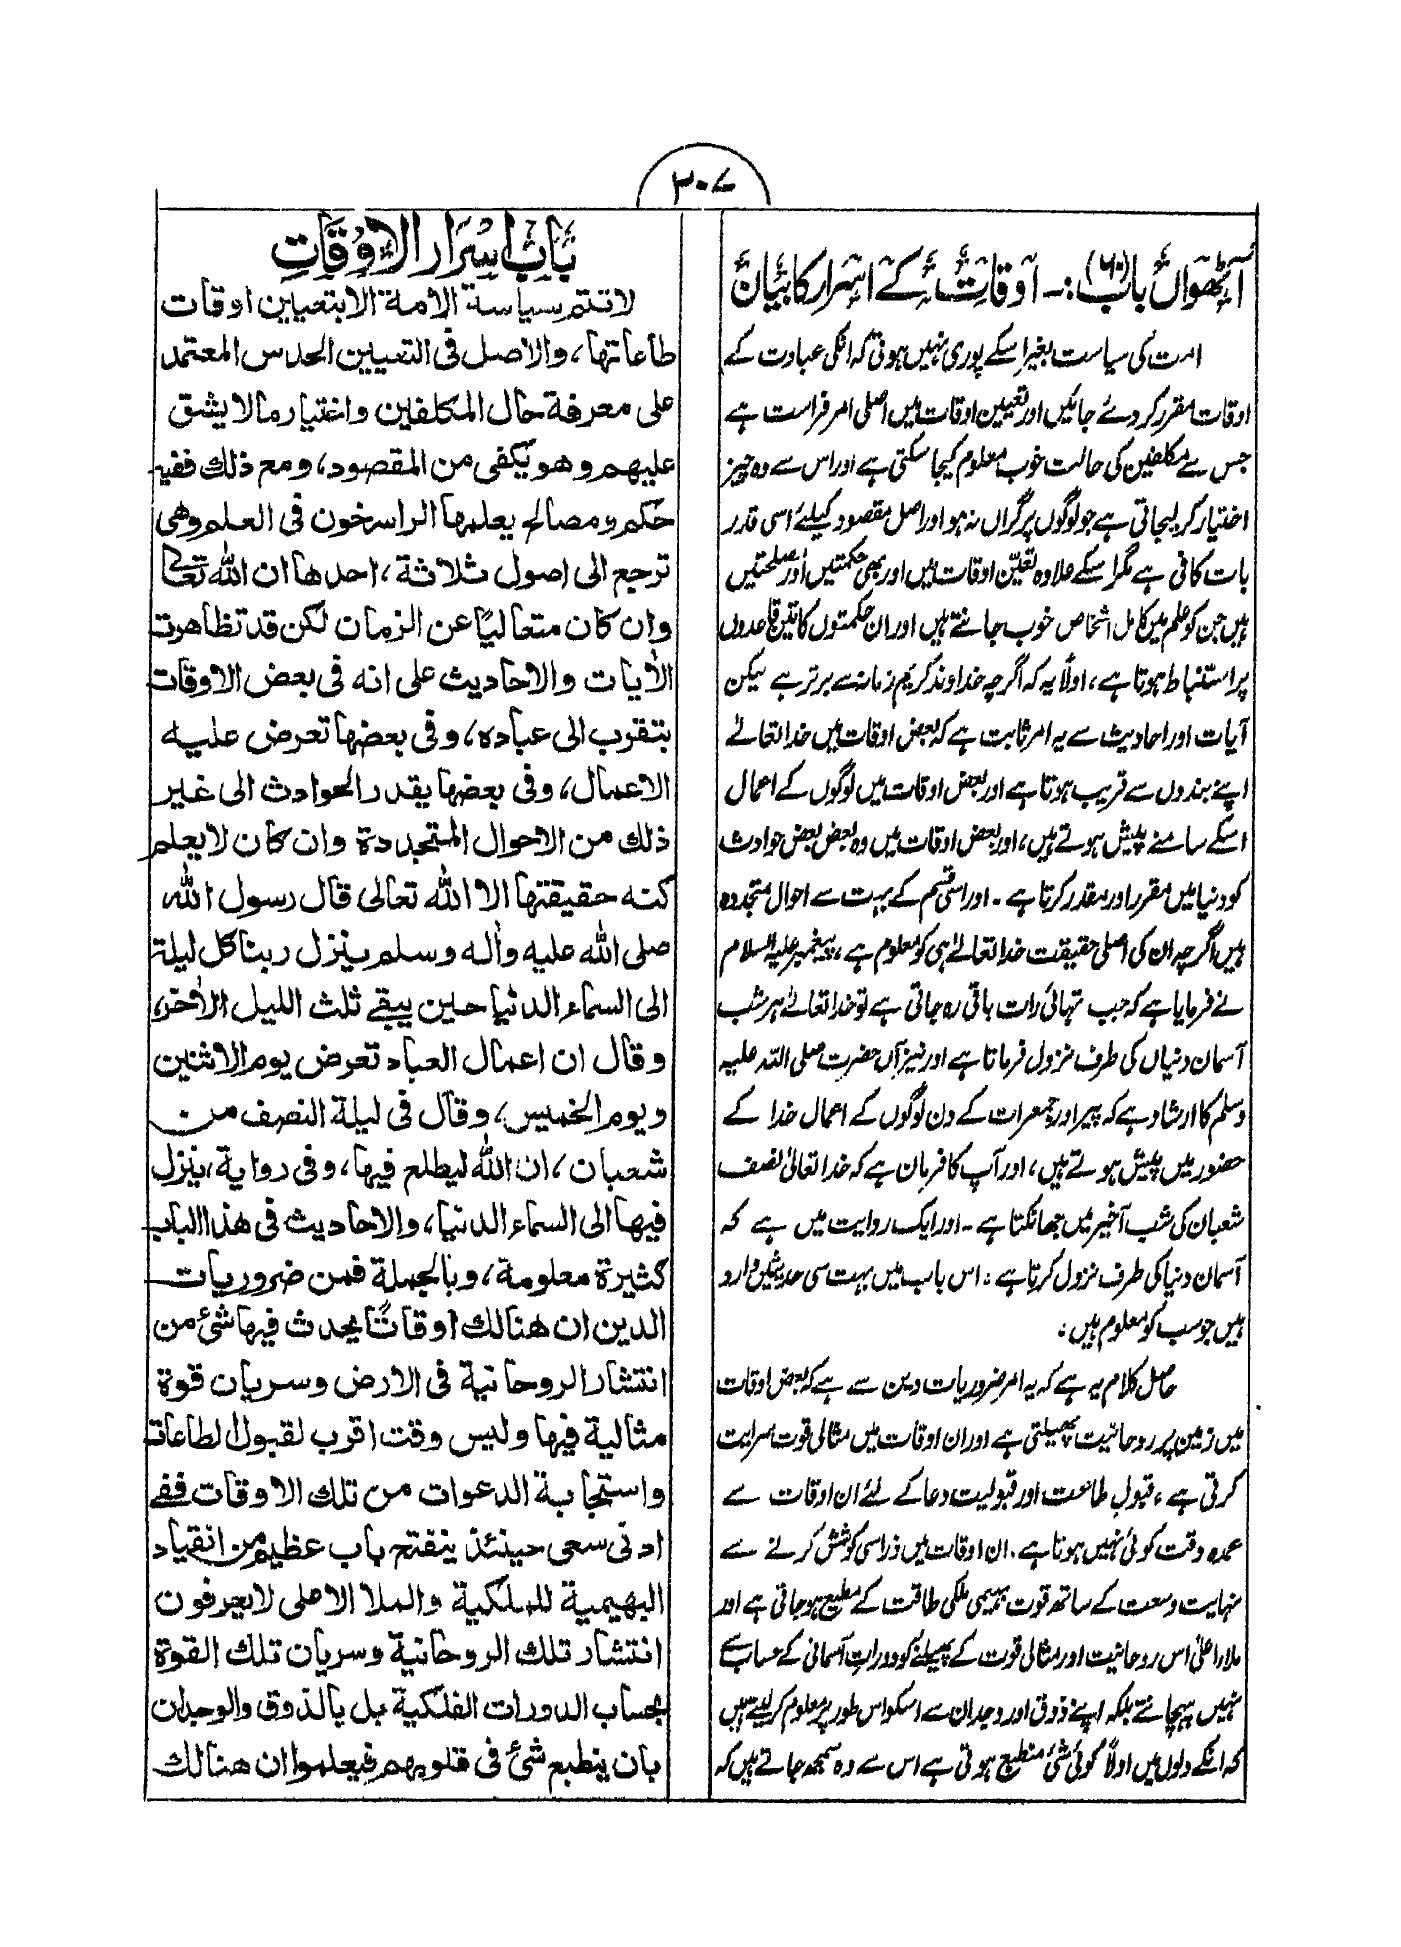 ۳۰۷
آٹھواں باب (۶۰) :- اوقات کے اسرار کا بیان
امت کی سیاست بغیر اسکے پوری نہیں ہوتی کہ انکی عبادت کے
اوقات مقرر کر دئے جائیں اور تعیین اوقات میں اصلی امر فراست ہے
جس سے مکلفین کی حالت خوب معلوم کیجا سکتی ہے اور اس سے وہ چیز
اختیار کر لیجاتی ہے جو لوگوں پر گراں نہ ہو اور اصل مقصود کیلئے اسی قدر
بات کافی ہے مگر اسکے علاوہ تعیّن اوقات میں اور بھی حکمتیں اور مصلحتیں
ہیں جن کو علم میں کامل اشخاص خوب جانتے ہیں اور ان حکمتوں کا تین قاعدوں
پر استنباط ہوتا ہے، اولاً یہ کہ اگرچہ خداوند کریم زمانہ سے برتر ہے لیکن
آیات اور احادیث سے یہ امر ثابت ہے کہ بعض اوقات میں خدا تعالےٰ
اپنے بندوں سے قریب ہوتا ہے اور بعض اوقات میں لوگوں کے اعمال
اسکے سامنے پیش ہوتے ہیں، اور بعض اوقات میں وہ بعض بعض حوادث
کو دنیا میں مقرر اور مقدر کرتا ہے ۔ اور اسی قسم کے بہت سے احوال متجددہ
ہیں اگرچہ ان کی اصلی حقیقت خدا تعالےٰ ہی کو معلوم ہے، پیغمبر علیہ السلام
نے فرمایا ہے کہ جب تہائی رات باقی رہ جاتی ہے تو خدا تعالےٰ ہر شب
آسمان دنیاں کی طرف نزول فرماتا ہے اور نیز آں حضرت صلی اللہ علیہ
وسلم کا ارشاد ہے کہ پیر اور جمعرات کے دن لوگوں کے اعمال خدا کے
حضور میں پیش ہوتے ہیں، اور آپ کا فرمان ہے کہ خدا تعالیٰ نصف
شعبان کی شب آخیر میں جھانکتا ہے ۔ اور ایک روایت میں ہے کہ
آسمان دنیا کی طرف نزول کرتا ہے، اس باب میں بہت سی حدیثیں وارد
ہیں جو سب کو معلوم ہیں،
حاصل کلام یہ ہے کہ یہ امر ضروریات دین سے ہے کہ بعض اوقات
میں زمین پر روحانیت پھیلتی ہے اور ان اوقات میں مثالی قوت سرایت
کرتی ہے، قبولِ طاعت اور قبولیت دعا کے لئے ان اوقات سے
عمدہ وقت کوئی نہیں ہوتا ہے، ان اوقات میں ذراسی کوشش کرنے سے
نہایت وسعت کے ساتھ قوت بہیمی ملکی طاقت کے مطیع ہو جاتی ہے اور
ملاء اعلیٰ اس روحانیت اور مثالی قوت کے پھیلنے کو دورات آسمانی کے حساب سے
نہیں پہچانتے بلکہ اپنے ذوق اور وجدان سے اسکو اس طور پر معلوم کر لیتے ہیں
کہ انکے دلوں میں اولاً کوئی شئی منطبع ہوتی ہے اس سے وہ سمجھ جاتے ہیں کہ
بَابُ اسْرَارِ الْاَوْقَاتِ
لا تتم سياسة الامة الا بتعيين اوقات
طاعاتها، والاصل فى التعيين الحدس المعتمد
على معرفة حال المكلفين واختيار ما لا يشق
عليهم وهو يكفى من المقصود، ومع ذلك ففيه
حكم ومصالح يعلمها الراسخون فى العلم وهى
ترجع الى اصول ثلاثة، احدها ان الله تعالى
وان كان متعاليًا عن الزمان لكن قد تظاهرت
الأيات والاحاديث على انه فى بعض الاوقات
يتقرب الى عباده، وفى بعضها تعرض عليه
الاعمال، وفى بعضها يقدر الحوادث الى غير
ذلك من الاحوال المتجددة وان كان لا يعلم
كنه حقيقتها الا الله تعالى قال رسول الله
صلى الله عليه وأله وسلم ينزل ربنا كل ليلة
الى السماء الدنيا حين يبقى ثلث الليل الأخر،
وقال ان اعمال العباد تعرض يوم الاثنين
ويوم الخميس، وقال فى ليلة النصف من
شعبان، ان الله ليطلع فيها، وفى رواية، ينزل
فيها الى السماء الدنيا، والاحاديث فى هذا الباب
كثيرة معلومة، وبالجملة فمن ضروريات
الدين ان هنالك اوقاتًا يحدث فيها شئ من
انتشار الروحانية فى الارض وسريان قوة
مثالية فيها وليس وقت اقرب لقبول الطاعات
واستجابة الدعوات من تلك الاوقات ففى
ادنى سعى حينئذ ينفتح باب عظيم من انقياد
البهيمية للملكية والملا الاعلى لا يعرفون
انتشار تلك الروحانية وسريان تلك القوة
بحساب الدورات الفلكية بل بالذوق والوجدان
بان ينطبع شئ فى قلوبهم فيعلموا ان هنالك